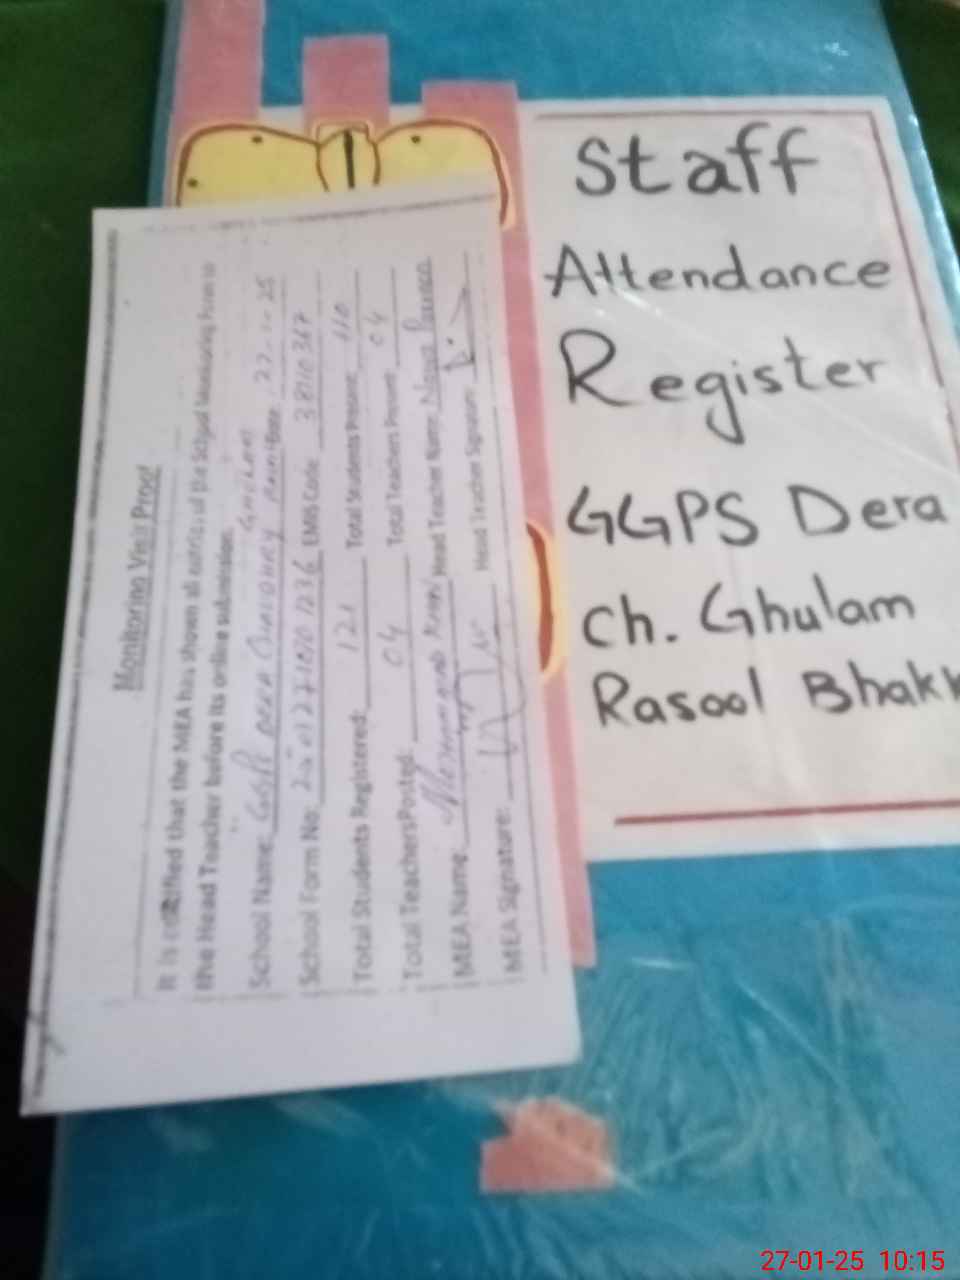 Staff
Attendance
Register
GGPS Dera
Ch. Ghulam
Rasool Bhakk
Monitoring Visit Proof
It is certified that the MEA has shown all entries of the School Monitoring Form to
the Head Teacher before its online submission.
School Name GGPS DERA Ghulam Date:
School Form No: EMIS Code 38110367
Total Students Registered: 121 Total Students Present: 110
Total Teachers Posted: 04 Total Teachers Present: 04
MEA Name Muhammad Head Teacher Name
MEA Signature: Head Teacher Signature:
27-01-25 10:15